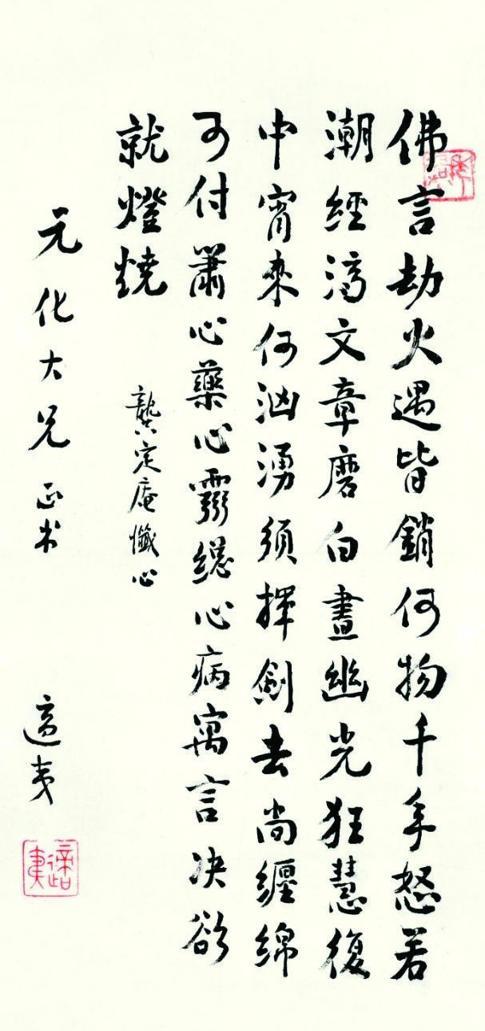 佛言劫火遇皆銷何物千年怒若
潮經濟文章磨白晝幽光狂慧復
中宵來何汹湧須揮劍去尚纏綿
可付簫心藥心靈總心病寓言决欲
就燈燒
龔定庵懺心
元化大兄正书
適夷
適夷